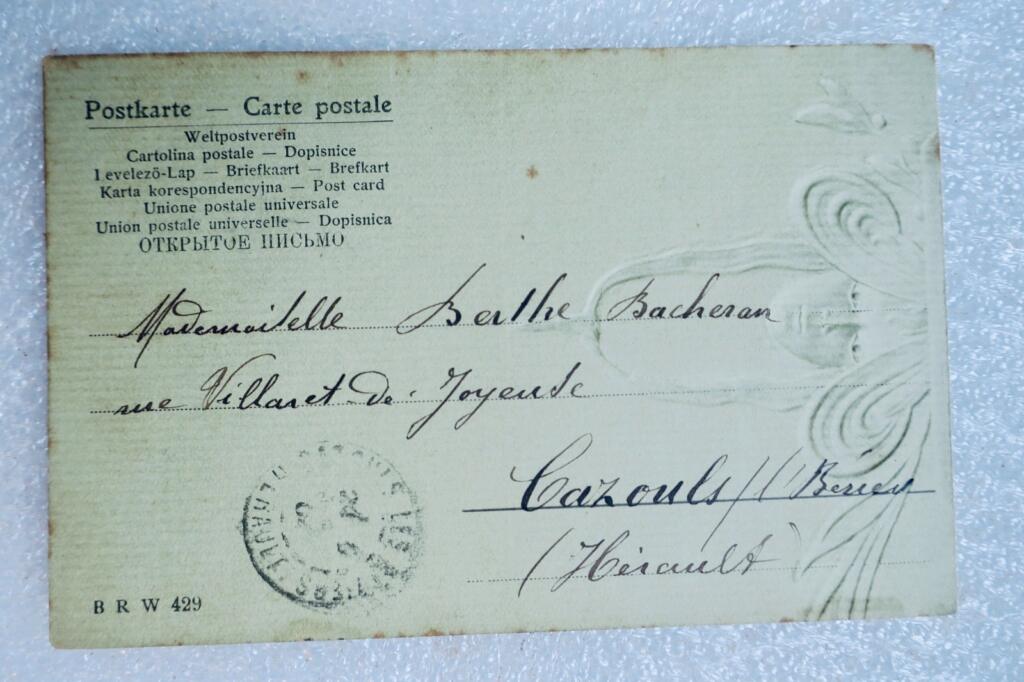 Postkarte — Carte postale
Weltpostverein
Cartolina postale — Dopisnice
Levelezö-Lap — Briefkaart — Brefkart
Karta korespondencyjna — Post card
Unione postale universale
Union postale universelle — Dopisnica
ОТКРЫТОЕ ПИСЬМО
Mademoiselle Berthe Bacheran
rue Villaret-de-Joyeuse
Cazouls / Béziers
(Hérault)
B R W 429